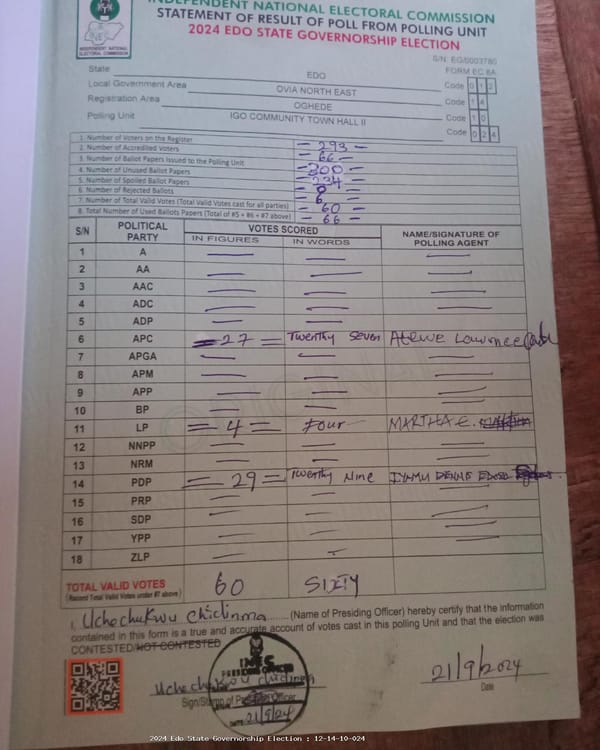 INDEPENDENT NATIONAL ELECTORAL COMMISSION
STATEMENT OF RESULT OF POLL FROM POLLING UNIT
2024 EDO STATE GOVERNORSHIP ELECTION
INEC
INDEPENDENT NATIONAL ELECTORAL COMMISSION
S/N: EG/0003780
FORM EC 8A
State EDO Code 0 1 2
Local Government Area OVIA NORTH EAST Code 1 4
Registration Area OGHEDE Code 1 0
Polling Unit IGO COMMUNITY TOWN HALL II Code 0 2 4
1. Number of Voters on the Register = 293 =
2. Number of Accredited Voters = 66 =
3. Number of Ballot Papers Issued to the Polling Unit = 300 =
4. Number of Unused Ballot Papers = 234 =
5. Number of Spoiled Ballot Papers
6. Number of Rejected Ballots 6
7. Number of Total Valid Votes (Total Valid Votes cast for all parties) = 60 =
8. Total Number of Used Ballots Papers (Total of #5 + #6 + #7 above) = 66 =
S/N POLITICAL PARTY VOTES SCORED NAME/SIGNATURE OF POLLING AGENT
IN FIGURES IN WORDS
1 A
2 AA
3 AAC
4 ADC
5 ADP
6 APC = 27 = Twenty Seven Lawrence
7 APGA
8 APM
9 APP
10 BP
11 LP = 4 = Four MARTHA E.
12 NNPP
13 NRM
14 PDP = 29 = Twenty Nine
15 PRP
16 SDP
17 YPP
18 ZLP
TOTAL VALID VOTES 60 SIXTY
(Record Total Valid Votes under #7 above)
I, Uchechukwu Chidinma (Name of Presiding Officer) hereby certify that the information
contained in this form is a true and accurate account of votes cast in this polling Unit and that the election was
CONTESTED/NOT CONTESTED
INEC
PRESIDING OFFICER
Uchechukwu Chidinma
Sign/Stamp of Presiding Officer
DATE 21/9/24
21/9/2024
Date
2024 Edo State Governorship Election : 12-14-10-024